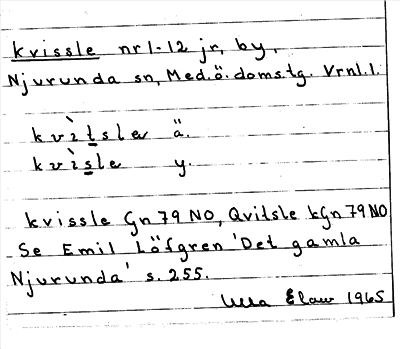 Kvissle nr 1-12 jr, by,
Njurunda sn, Med.ö.doms.tg. Vrnl.l.
kvìtsler ä.
kvìsle y.
kvissle Gn 79 NO, Qvitsle kGn 79 NO
Se Emil Löfgren 'Det gamla
Njurunda' s. 255.
Ulla Elow 1965